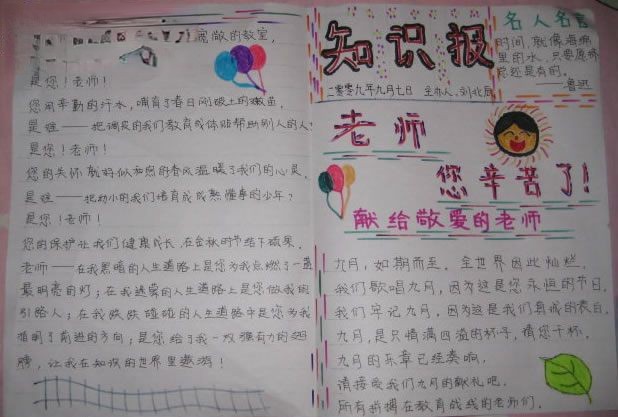 宽敞的教室,
是您！老师！
您用辛勤的汗水，哺育了春日刚破土的嫩苗，
是谁——把调皮的我们教育成体贴帮助别人的人
是您！老师！
您的关怀就好似和煦的春风温暖了我们的心灵。
是谁——把幼小的我们培育成成熟懂事的少年？
是您！老师！
您的保护让我们健康成长，在金秋时节结下硕果。
老师——在我黑暗的人生道路上是您为我点燃了一盏
最明亮的灯；在我迷茫的人生道路上是您做我的
引路人；在我跌跌碰碰的人生道路中是您为我
指明了前进的方向；是您给了我一双强有力的翅
膀，让我在知识的世界里遨游！
知识报
二零零九年九月七日 主办人：刘北辰
名人名言
时间，就像海绵
里的水，只要愿挤
总还是有的。
——鲁迅
老师
您辛苦了！
献给敬爱的老师
九月，如期而至。全世界因此灿烂。
我们歌唱九月，因为这是您永恒的节日。
我们牢记九月，因为这是我们真诚的表白。
九月，是只情满四溢的杯子，请您干杯。
九月的乐章已经奏响。
请接受我们九月的献礼吧。
所有拼搏在教育战线的老师们。